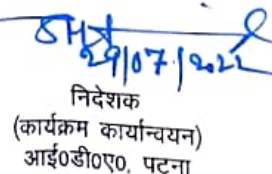 29/07/2022
निदेशक
(कार्यक्रम कार्यान्वयन)
आई०डी०ए०, पटना